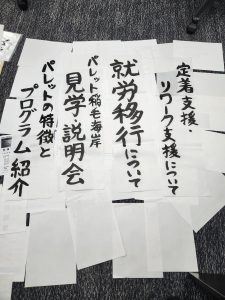 定着支援・
リワーク支援について
就労移行について
パレット稲毛海岸
見学・説明会
パレットの特徴と
プログラム紹介